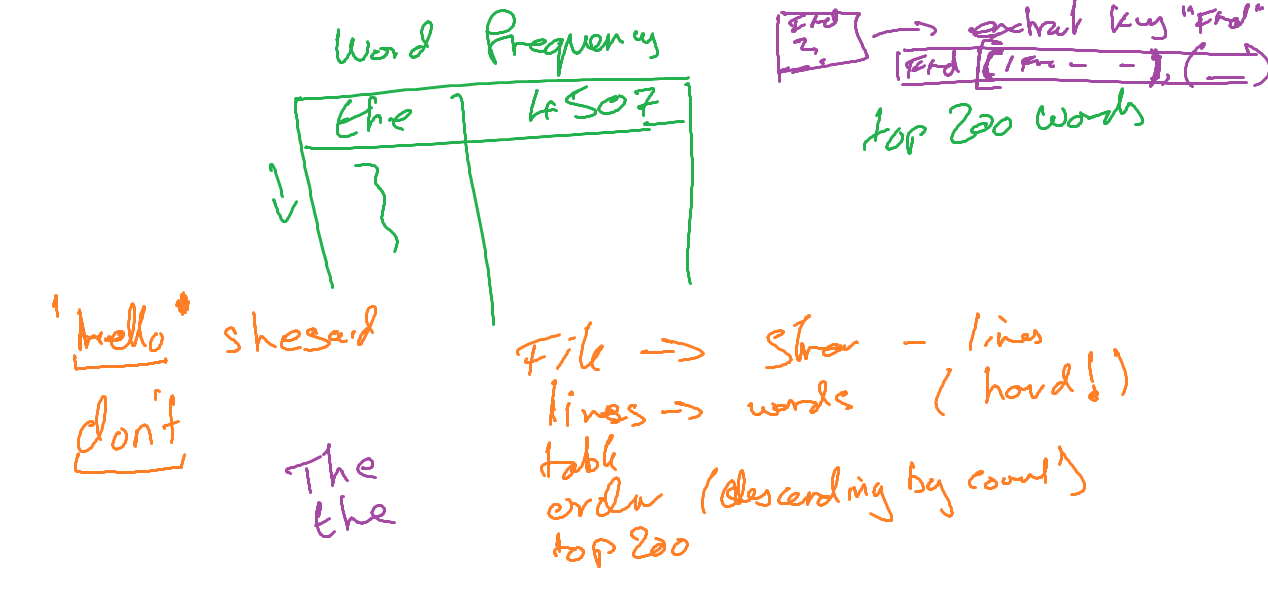 Word Frequency
the 4507
Frd → extract key "Frd"
Frd
top 200 words
'Hello' she said
don't
The
the
File → Stream - lines
lines → words (hard!)
table
order (descending by count)
top 200